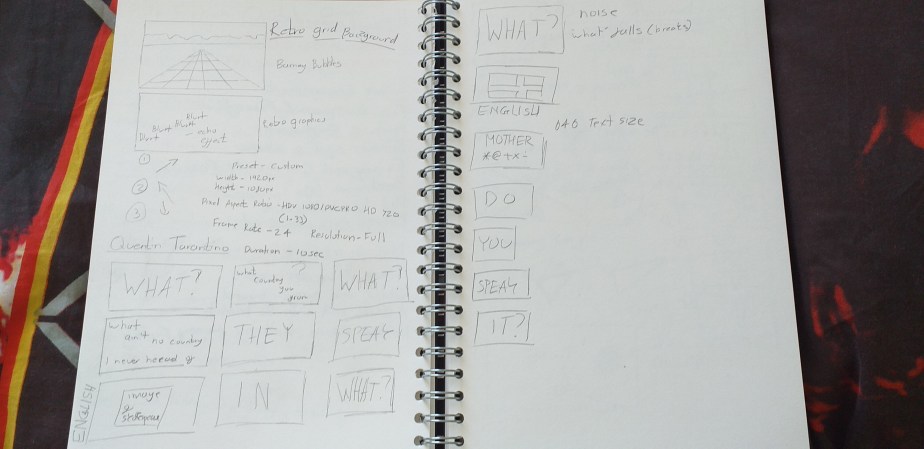 Retro grid Background
Barney Bubbles
blurt
blurt
blurt
blurt
echo
effect
retro graphics
1
2
3
Preset - Custom
Width - 1920px
height - 1080px
Pixel Aspect Ratio - HDV 1080/DVCPRO HD 720
(1.33)
Frame Rate - 24 Resolution - Full
Quentin Tarantino Duration - 10sec
WHAT?
what
country
you
from
?
WHAT?
what
ain't no country
I never heard of
THEY
SPEAK
ENGLISH
image
of
IN
WHAT?
WHAT?
noise
"what" falls (breaks)
ENGLISH
MOTHER
*@+x-
040 Text size
DO
YOU
SPEAK
IT?